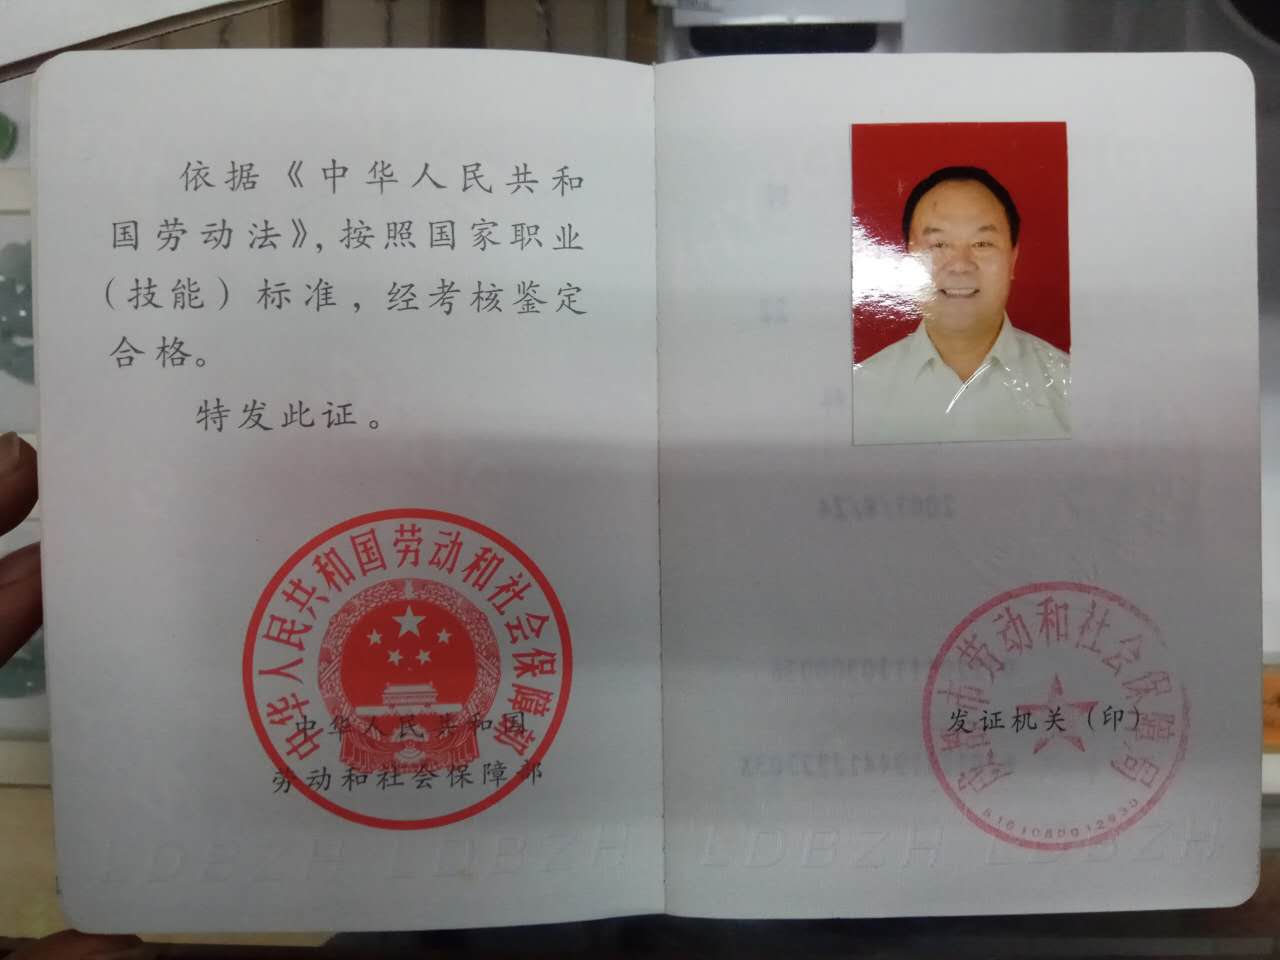 依据《中华人民共和
国劳动法》,按照国家职业
(技能)标准,经考核鉴定
合格。
特发此证。
中华人民共和国劳动和社会保障部
中华人民共和国
劳动和社会保障部
市劳动和社会保障局
发证机关(印)
LDBZH LDBZH LDBZH LDBZH